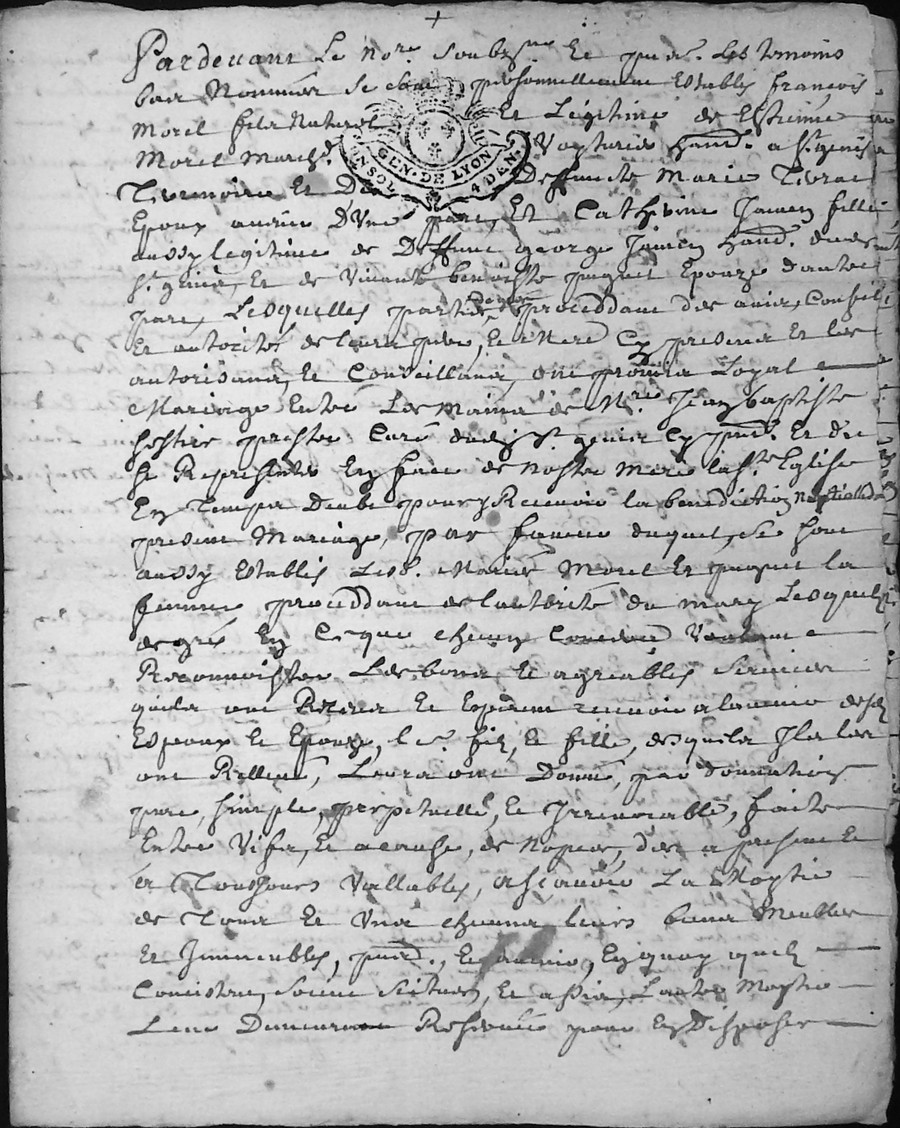 +
Pardevant Le no.re soubz.ne Et pnts. Les temoins
bas Nommés se sont personnellement Establis françois
Morel fils Naturel Et Légitime de Estienne
Morel March.d Voyturier hand. a s.t genis
GEN. DE LYON
4 DEN.
Terrenoire Et De Deffuncte Marie Tivrac
Epoux avenir D'Une part, Et Catherine Jamen fille
aussy legitime de Deffunt george Jamen hand. dud.
s.t genis, Et de Vivante benoiste puquet Epouze d'autre
part, Lesquelles parties de gré proceddant des avis, Conseil
Et autorités de leurs pere, Et Mere Cy presens Et les
autorisans, Et Conseillans, ont promis Loyal
Mariage Entre Les mains de M.re Jean baptiste
prestre Curé dud. s.t genis Cy pnt. Et de
se Representer En face de nostre Mere la s.te Eglise
En temps Deube pour y Recevoir la benediction Nuptialle
present Mariage, par faveur duquel, se sont
aussy Establis Les. Mariés Morel Et puquet la
femme proceddant de l'autorité du mary Lesquels
de gré En Ce que chacun Concerne Voulant
Reconnoistre Les bons Et agreables services
quils ont Receus Et Esperent recevoir a l'avenir desd.
Espoux Et Epouze, les. fils, Et fille, desquels Ils les
ont Rellevé, Leurs ont Donné, par donnation
pure, simple, perpetuelle, Et Irrevocable, faite
Entre Vifs, Et a cause, de Nopces, des a present Et
a Tousjours Vallables, a scavoir La Moytié
de Tous Et Uns chacuns leurs biens Meubles
Et Immeubles, pnts., Et avenir, En quoy quils
Consistent, soient scitués, Et assis, L'autre Moytié
Leur Demeurant Reservée pour En Disposer